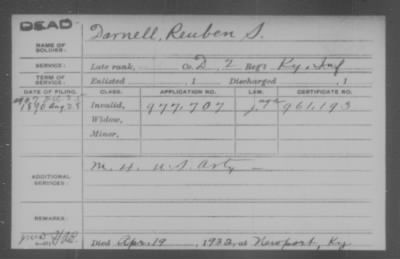 DEAD
NAME OF SOLDIER: Darnell, Reuben S.
SERVICE: Late rank, Co. D, 2 Reg't Ky. Inf
TERM OF SERVICE: Enlisted , 1 Discharged , 1
DATE OF FILING. CLASS. APPLICATION NO. LAW. CERTIFICATE NO.
1890 Aug 25 Invalid, 977,707 961,193
Widow,
Minor,
ADDITIONAL SERVICES: M. H. U.S. Arty
REMARKS:
Died Apr. 19, 1922, at Newport, Ky